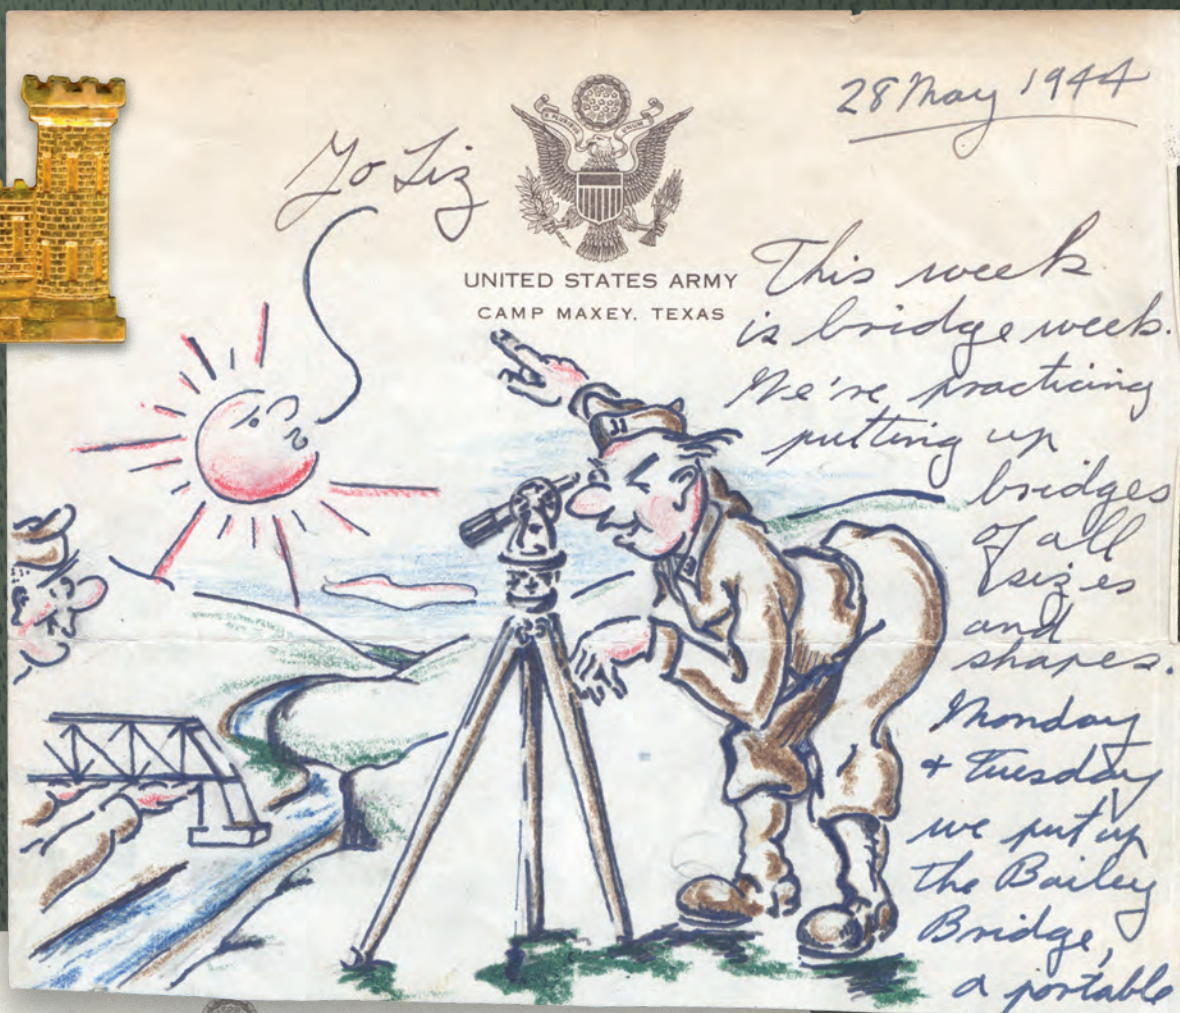 28 May 1944
Yo Liz
UNITED STATES ARMY
CAMP MAXEY, TEXAS
This week
is bridge week.
We're practicing
putting up
bridges
of all
sizes
and
shapes.
Monday
+ Tuesday
we put up
the Bailey
Bridge,
a portable